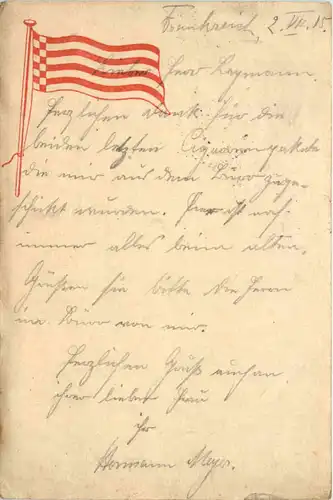 Frankreich, 2. VII. 15.
Lieber Herr Legmann.
Herzlichen Dank für die
beiden letzten Cigarrenpakete
die mir aus dem Büro zuge-
schickt wurden. Hier ist noch
immer alles beim alten.
Grüßen Sie bitte die Herrn
im Büro von mir.
Herzlichen Gruß auch an
ihrer lieben Frau
ihr
Hermann Meyer.